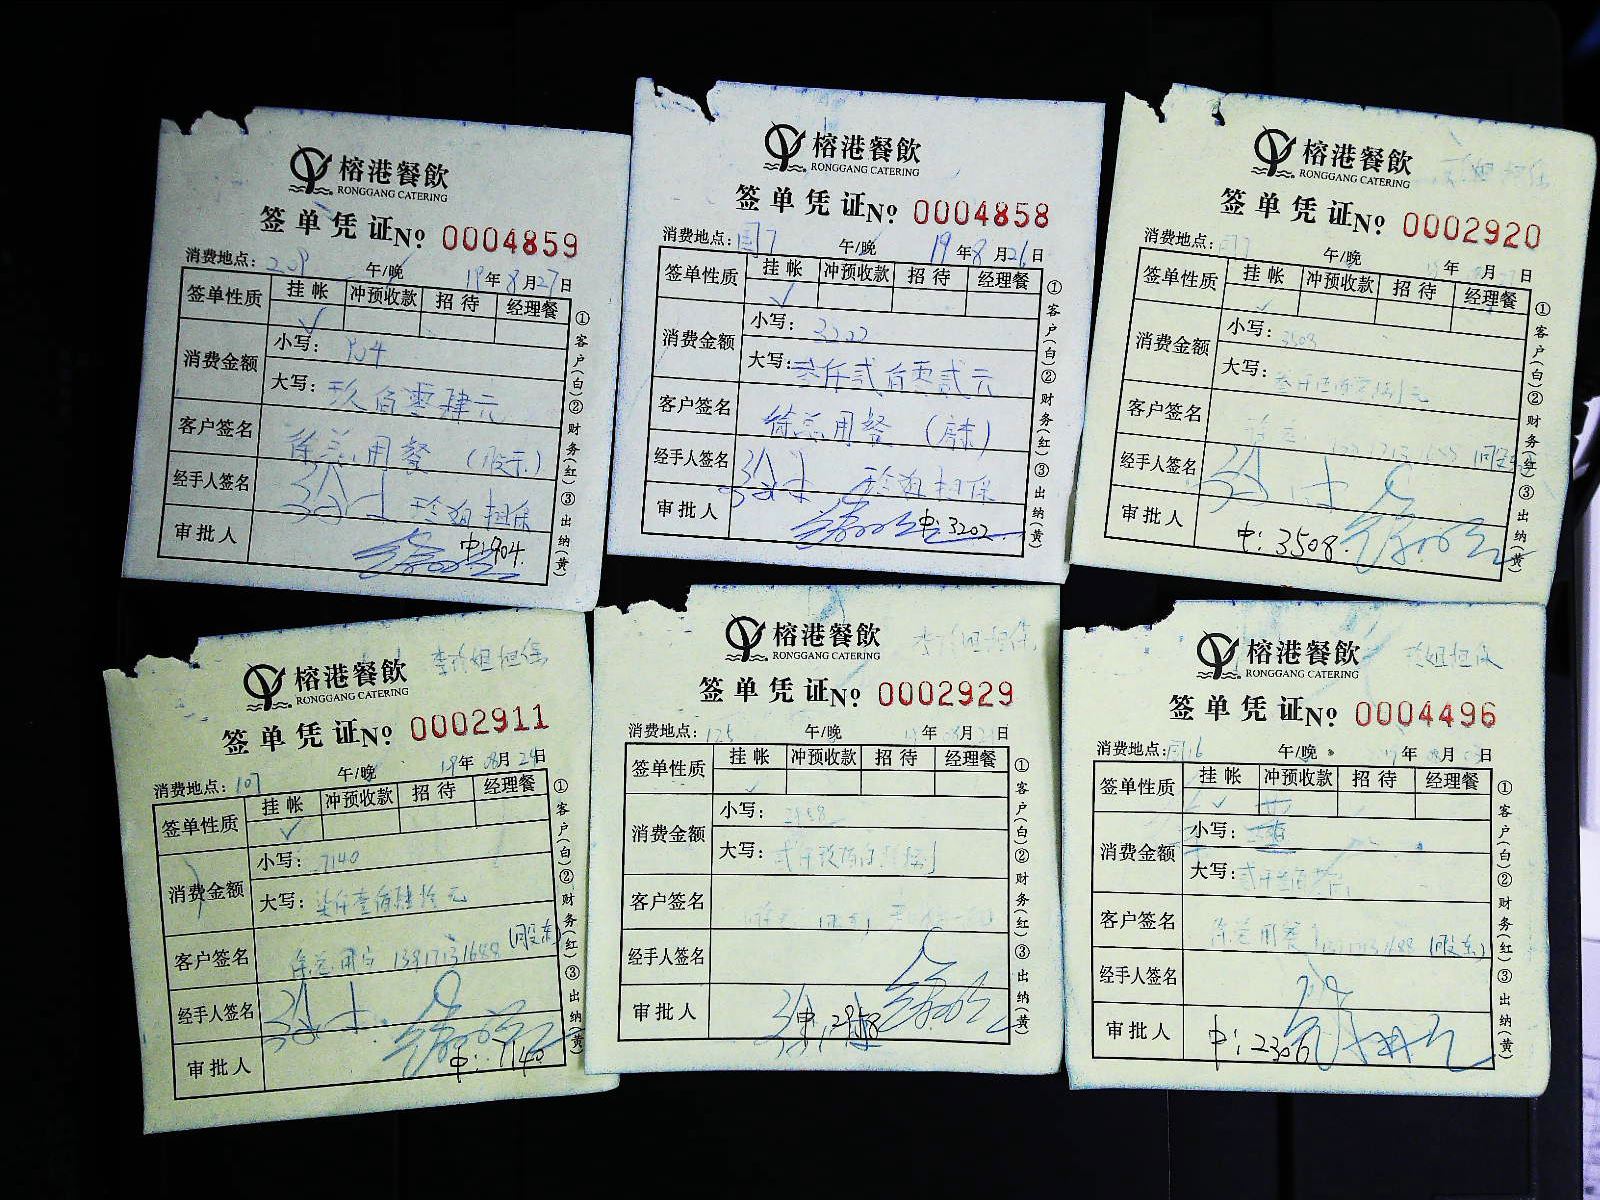 榕港餐飲
RONGGANG CATERING
签单凭证№ 0004859
消费地点: 209 午/晚 19年8月27日
签单性质 挂帐 冲预收款 招待 经理餐
✓
消费金额 小写: 904
大写: 玖佰零肆元
客户签名 徐总用餐 (股东)
经手人签名 玲姐担保
审批人 中:904.
①客户(白)②财务(红)③出纳(黄)
榕港餐飲
RONGGANG CATERING
签单凭证№ 0004858
消费地点: 午/晚 19年8月26日
签单性质 挂帐 冲预收款 招待 经理餐
✓
消费金额 小写: 3202
大写: 叁仟贰佰零贰元
客户签名 徐总用餐
经手人签名 玲姐担保
审批人 中:3202
①客户(白)②财务(红)③出纳(黄)
榕港餐飲
RONGGANG CATERING
担保
签单凭证№ 0002920
消费地点: 午/晚 年 月 日
签单性质 挂帐 冲预收款 招待 经理餐
✓
消费金额 小写: 3508
大写:
客户签名 (股东)
经手人签名
审批人 中:3508.
①客户(白)②财务(红)③出纳(黄)
榕港餐飲
RONGGANG CATERING
李玲姐担保
签单凭证№ 0002911
消费地点: 107 午/晚 19年08月24日
签单性质 挂帐 冲预收款 招待 经理餐
✓
消费金额 小写: 7140
大写: 柒仟壹佰肆拾元
客户签名 徐总用 (股东)
经手人签名
审批人 中:7140
①客户(白)②财务(红)③出纳(黄)
榕港餐飲
RONGGANG CATERING
李玲姐担保
签单凭证№ 0002929
消费地点: 125 午/晚 年 月 日
签单性质 挂帐 冲预收款 招待 经理餐
✓
消费金额 小写: 2958
大写:
客户签名
经手人签名
审批人 中:2958
①客户(白)②财务(红)③出纳(黄)
榕港餐飲
RONGGANG CATERING
玲姐担保
签单凭证№ 0004496
消费地点: 午/晚 年 月 日
签单性质 挂帐 冲预收款 招待 经理餐
✓
消费金额 小写:
大写:
客户签名 徐总用餐 (股东)
经手人签名
审批人 中:2306
①客户(白)②财务(红)③出纳(黄)